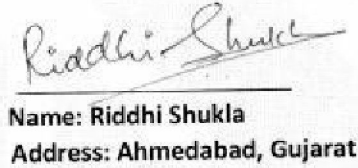 Riddhi Shukla
Name: Riddhi Shukla
Address: Ahmedabad, Gujarat